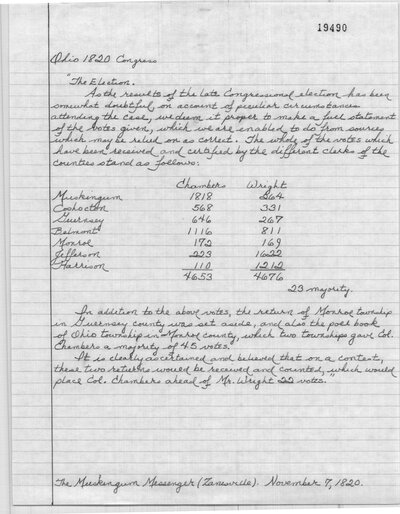 19490
Ohio 1820 Congress
"The Election.
As the results of the late Congressional election has been
somewhat doubtful, on account of peculiar circumstances
attending the case, we deem it proper to make a full statement
of the votes given, which we are enabled to do from sources
which may be relied on as correct. The whole of the votes which
have been received and certified by the different clerks of the
counties stand as follows:
Chambers Wright
Muskingum 1818 264
Coshocton 568 331
Guernsey 646 267
Belmont 1116 811
Monroe 172 169
Jefferson 223 1622
Harrison 110 1212
4653 4676
23 majority.
In addition to the above votes, the return of Monroe township
in Guernsey county was set aside, and also the poll book
of Ohio township in Monroe county, which two townships gave Col.
Chambers a majority of 45 votes.
It is clearly ascertained and believed that on a contest,
these two returns would be received and counted, which would
place Col. Chambers ahead of Mr. Wright 22 votes."
The Muskingum Messenger (Zanesville). November 7, 1820.